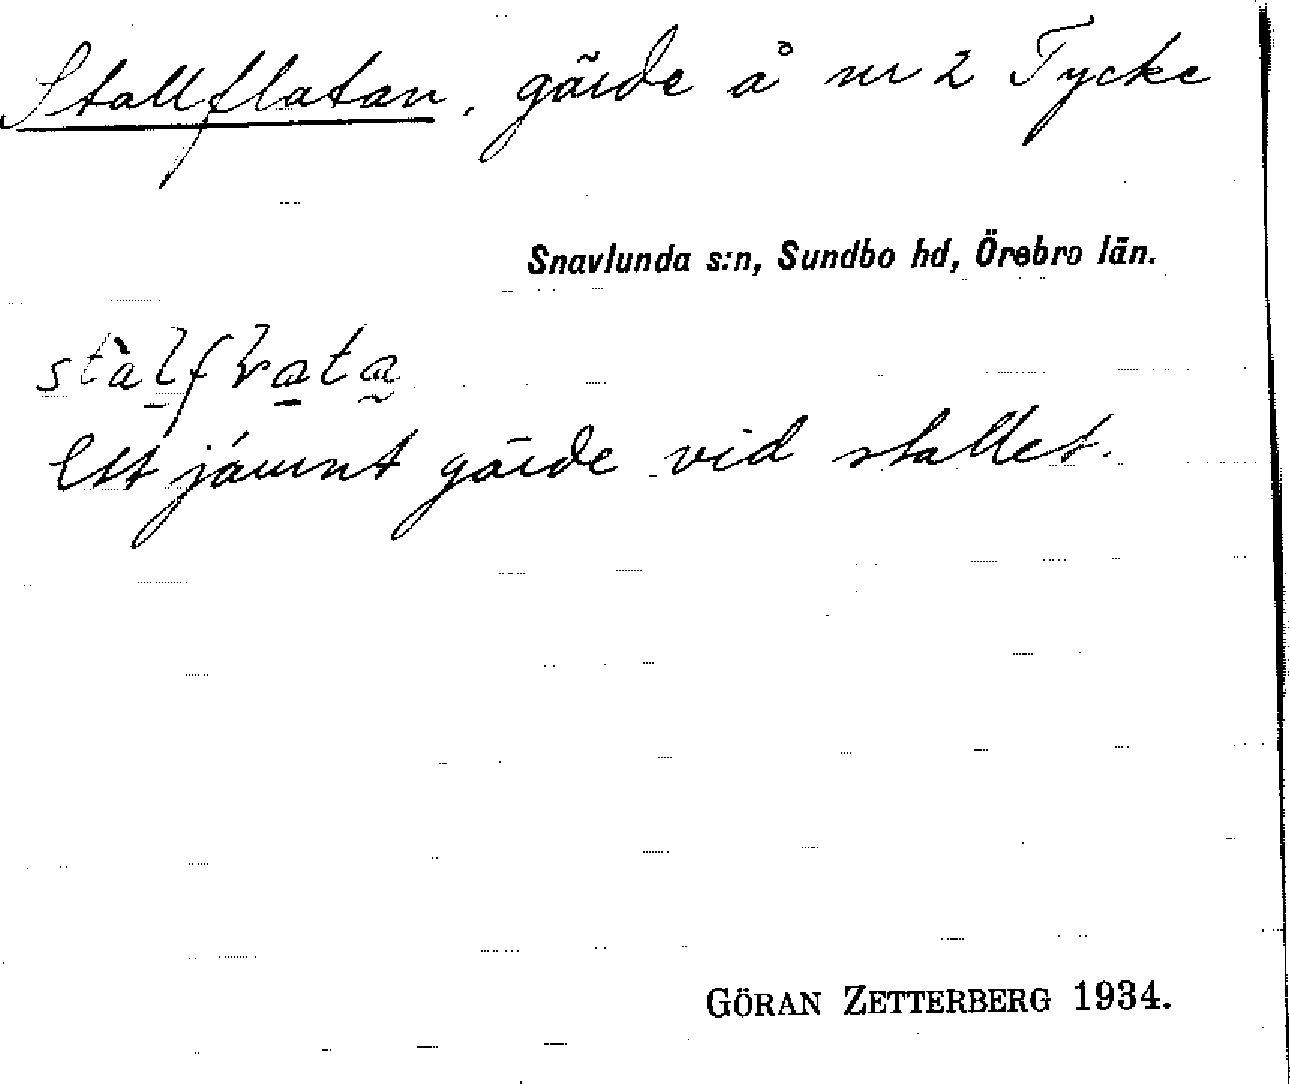 Stallflatan, gärde å nr 2 Tycke
Snavlunda s:n, Sundbo hd, Örebro län.
Ett jämnt gärde vid stallet.
GÖRAN ZETTERBERG 1934.